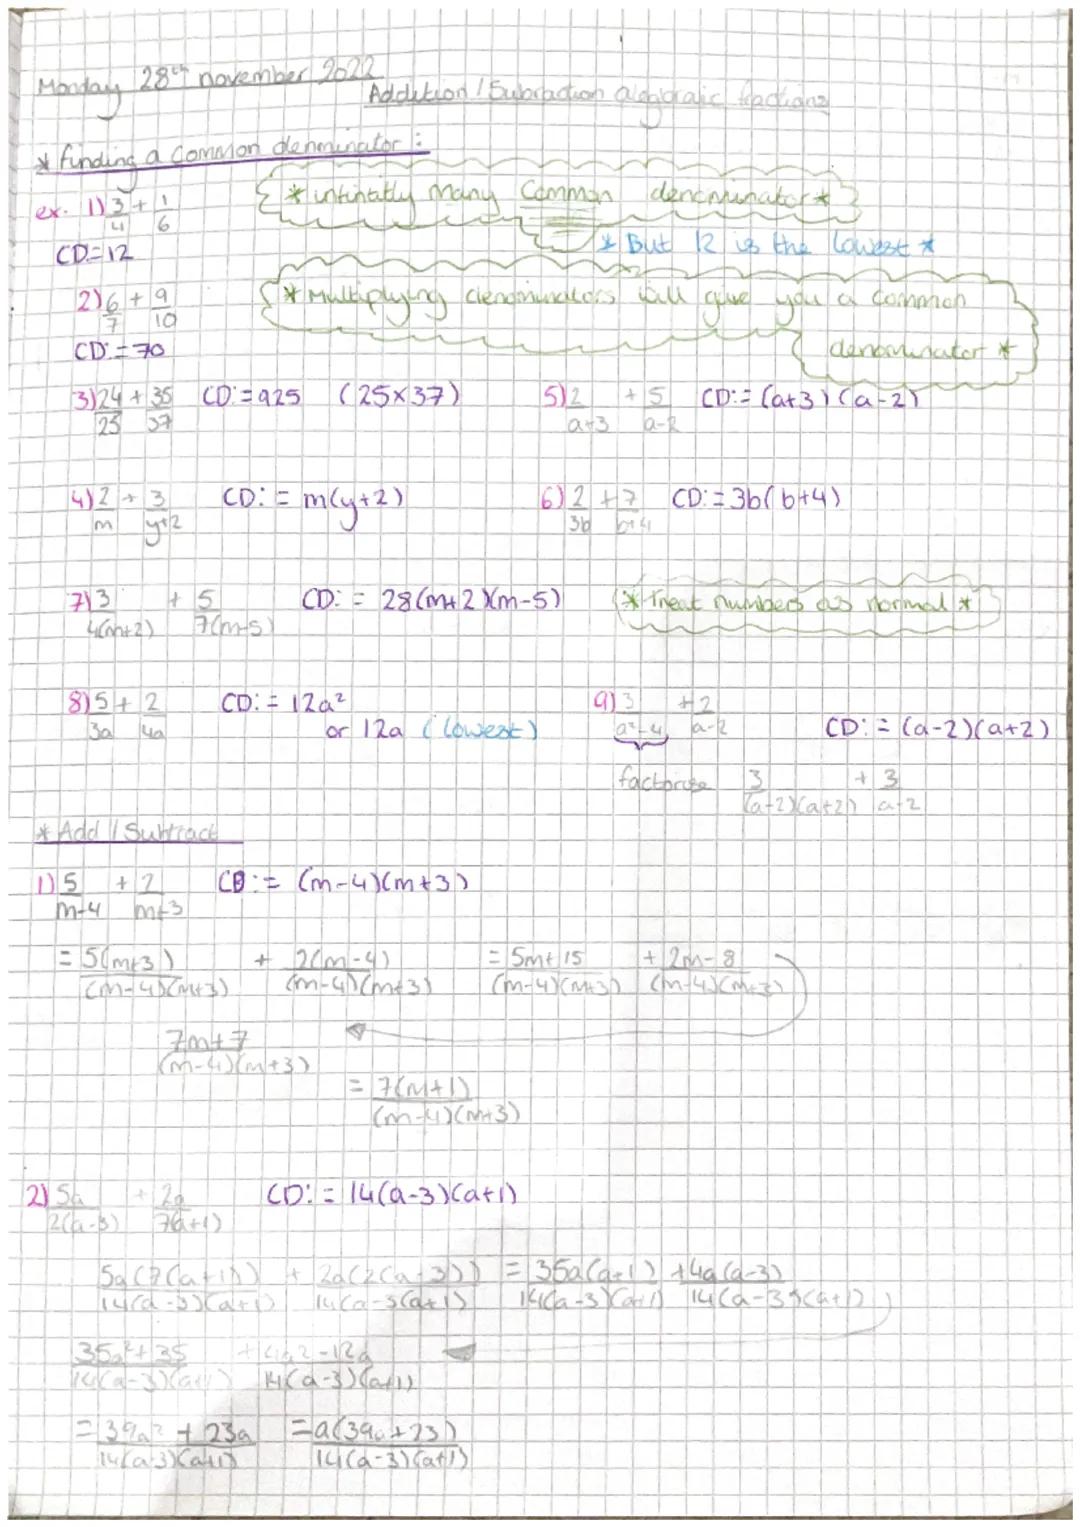 Monday 28th november 2022
Addition / Subtraction algebraic fractions
* finding a common denminator :
ex. 1) 3/4 + 1/6
* infinatly many Common denominator *
CD = 12
* But 12 is the lowest *
2) 6/7 + 9/10
* Multiplying denominators will give you a common
denominator *
CD = 70
3) 24/25 + 35/37 CD := 925 (25×37)
5) 2/a+3 + 5/a-2 CD := (a+3)(a-2)
4) 2/m + 3/y+2 CD: = m(y+2)
6) 2/3b + 7/b+4 CD: = 3b(b+4)
7) 3/4(m+2) + 5/7(m-5) CD: = 28(m+2)(m-5)
* Treat numbers as normal *
8) 5/3a + 2/4a CD: = 12a²
or 12a (lowest)
9) 3/a²-4 + 2/a-2 CD: = (a-2)(a+2)
factorise 3/(a-2)(a+2) + 3/a-2
* Add / Subtract
1) 5/m-4 + 2/m+3 CD := (m-4)(m+3)
= 5(m+3)/(m-4)(m+3) + 2(m-4)/(m-4)(m+3) = 5m+15/(m-4)(m+3) + 2m-8/(m-4)(m+3)
7m+7/(m-4)(m+3)
= 7(m+1)/(m-4)(m+3)
2) 5a/2(a-3) + 2a/7(a+1) CD: = 14(a-3)(a+1)
5a(7(a+1))/14(a-3)(a+1) + 2a(2(a-3))/14(a-3(a+1) = 35a(a+1)/14(a-3)(a+1) + 4a(a-3)/14(a-3)(a+1)
35a²+35/14(a-3)(a+1) + 4a2-12a/14(a-3)(a+1)
= 39a² + 23a/14(a-3)(a+1) = a(39a+23)/14(a-3)(a+1)